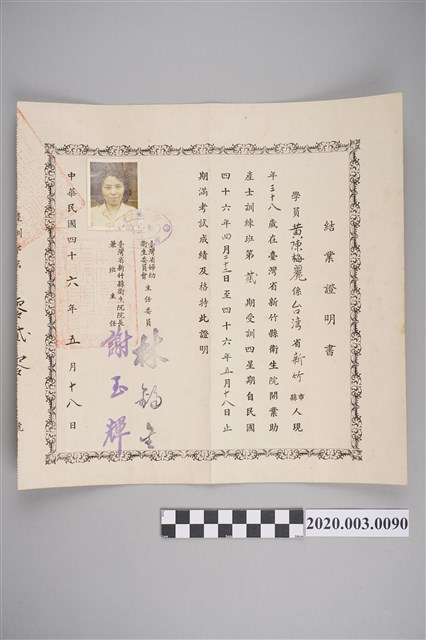 結業證明書
學員黃陳梅麗係台湾省新竹縣市人現
年三十八歲在臺灣省新竹縣衛生院開業助
產士訓練班第貳期受訓四星期自民國
四十六年四月二十二日至四十六年五月十八日止
期滿考試成績及格特此證明
臺灣省婦幼衛生委員會主任委員 林
臺灣省新竹縣衛生院院長兼班主任 謝玉輝
中華民國四十六年五月十八日
號
2020.003.0090